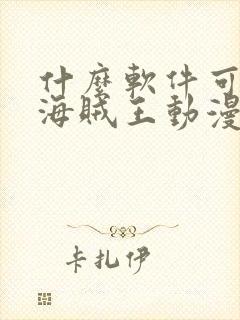 什麽軟件可
海賊王動漫
卡扎伊